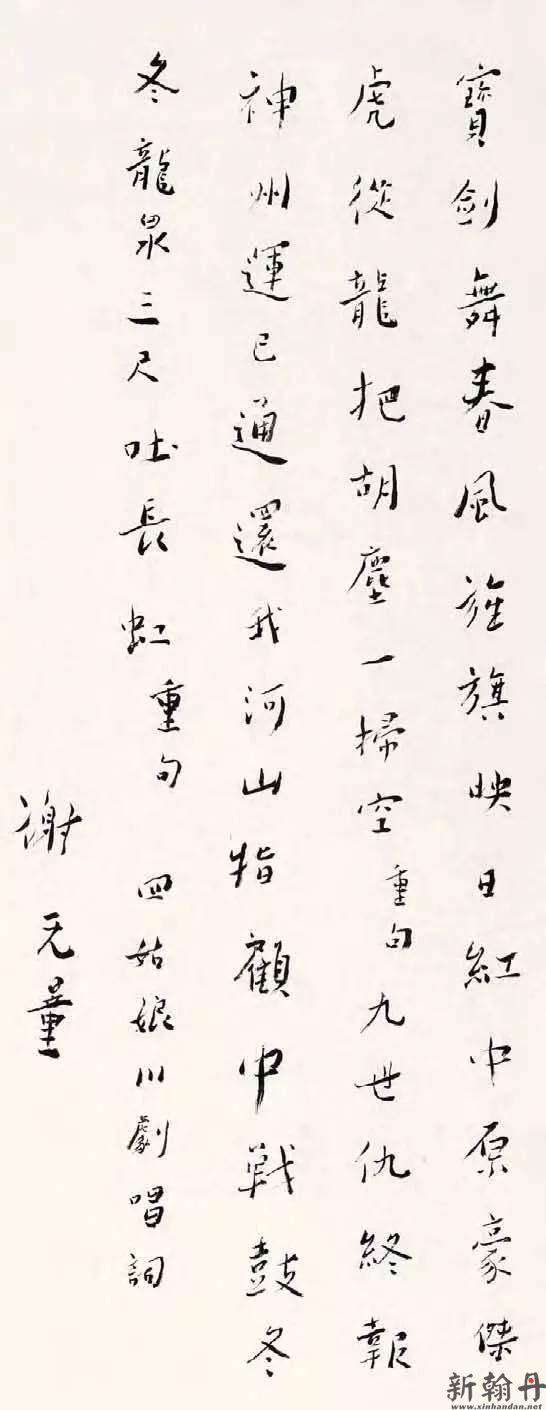 寶劍舞春風旌旗映日紅中原豪傑
虎從龍把胡塵一掃空重句九世仇終報
神州運已通還我河山指顧中戰鼓冬
冬龍泉三尺吐長虹重句 四姑娘川劇唱詞
謝无量
新翰丹
www.xinhandan.net